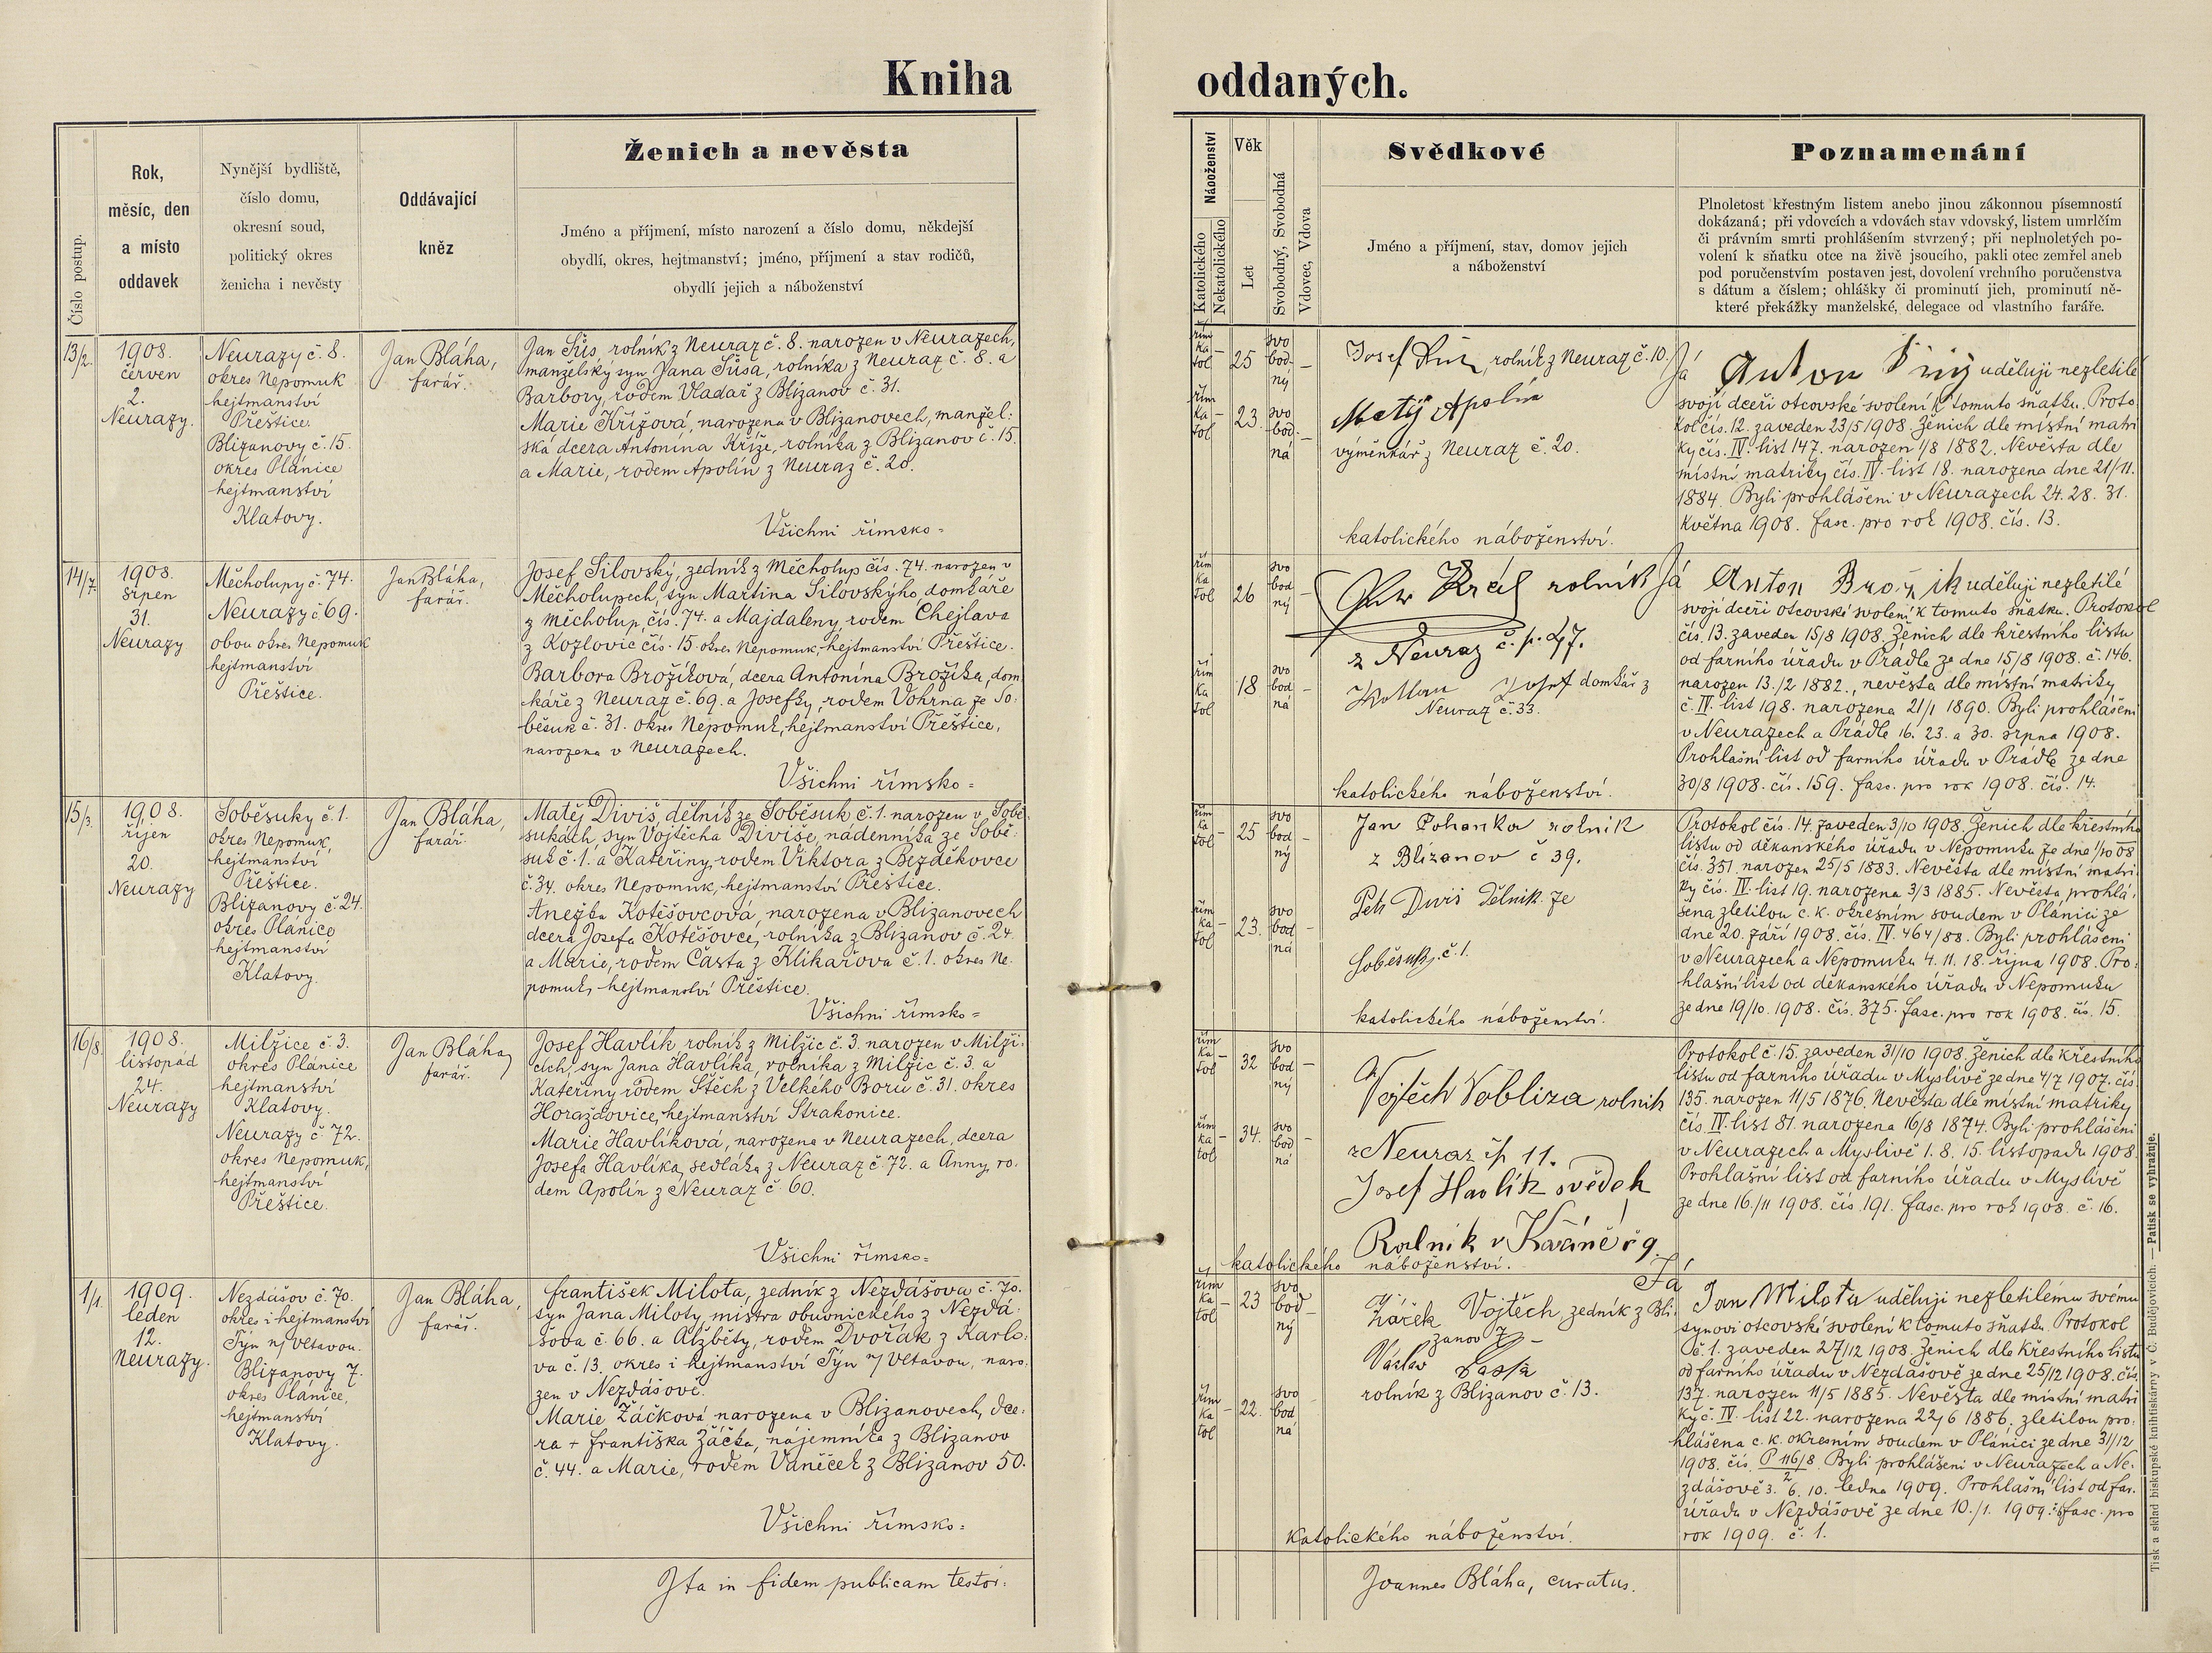 Kniha oddaných.
Číslo postup.
Rok,
měsíc, den
a místo
oddavek
Nynější bydliště,
číslo domu,
okresní soud,
politický okres
ženicha i nevěsty
Oddávající
kněz
Ženich a nevěsta
Jméno a příjmení, místo narození a číslo domu, někdejší
obydlí, okres, hejtmanství; jméno, příjmení a stav rodičů,
obydlí jejich a náboženství
Náboženství
Katolického
Nekatolického
Věk
Let
Svobodný, Svobodná
Vdovec, Vdova
Svědkové
Jméno a příjmení, stav, domov jejich
a náboženství
Poznamenání
Plnoletost křestným listem anebo jinou zákonnou písemností
dokázaná; při vdovcích a vdovách stav vdovský, listem umrlčím
či právním smrti prohlášením stvrzený; při neplnoletých po-
volení k sňatku otce na živě jsoucího, pakli otec zemřel aneb
pod poručenstvím postaven jest, dovolení vrchního poručenstva
s dátum a číslem; ohlášky či prominutí jich, prominutí ně-
které překážky manželské, delegace od vlastního faráře.
13/2.
1908.
červen
2.
Neurazy.
Neurazy č. 8.
okres Nepomuk
hejtmanství
Přeštice.
Blizanovy č. 15.
okres Plánice
hejtmanství
Klatovy.
Jan Bláha,
farář.
Jan Šůs, rolník z Neuraz č. 8. narozen v Neurazech,
manželský syn Jana Šůsa, rolníka z Neuraz č. 8. a
Barbory, rodem Vladař z Blizanov č. 31.
Marie Křížová, narozena v Blizanovech, manžel:
ská dcera Antonína Kříže, rolníka z Blizanov č. 15.
a Marie, rodem Apolín z Neuraz č. 20.
Všichni římsko=
řím
ka
tol
25
svo
bod
ný
řím
ka
tol
23.
svo
bod
ná
Josef
rolník z Neuraz č. 10.
Matěj Apolín
výměnkář z Neuraz č. 20.
katolického náboženství.
Já Anton uděluji nezletilé
svojí dceři otcovské svolení k tomuto sňatku. Proto
kol čís. 12. zaveden 23/5 1908. Ženich dle místní matri
ky čís. IV. list 147. narozen 1/8 1882. Nevěsta dle
místní matriky čís. IV. list 18. narozena dne 21/11.
1884. Byli prohlášeni v Neurazech 24. 28. 31.
Května 1908. fasc. pro rok 1908. čís. 13.
14/7.
1908.
srpen
31.
Neurazy
Měcholupy č. 74.
Neurazy č 69.
obou okres Nepomuk
hejtmanství
Přeštice.
Jan Bláha,
farář.
Josef Silovský, zedník z Měcholup čís. 74. narozen v
Měcholupech, syn Martina Silovskýho, domkáře
z Měcholup, čís. 74. a Majdaleny, rodem Chejlava
z Kozlovic čís. 15. okres Nepomuk, hejtmanství Přeštice.
Barbora Brožíková, dcera Antonína Brožíka, dom
káře z Neuraz č. 69. a Josefky, rodem Vohrna ze So:
běsuk č. 31. okres Nepomuk, hejtmanství Přeštice,
narozena v Neurazech.
Všichni římsko=
řím
ka
tol
26
svo
bod
ný
řím
ka
tol
18
svo
bod
ná
Král rolník
z Neuraz č. p. 47.
Josef domkář z
Neuraz č. 33.
katolického náboženství.
Já Anton Brožík uděluji nezletilé
svojí dceři otcovské svolení k tomuto sňatku. Protokol
čís. 13. zaveden 15/8 1908. Ženich dle křestního listu
od farního úřadu v Prádle ze dne 15/8 1908. č. 146.
narozen 13./2 1882., nevěsta dle místní matriky
č. IV. list 198. narozena 21/1 1890. Byli prohlášeni
v Neurazech a Prádle 16. 23. a 30. srpna 1908.
Prohlašní list od farního úřadu v Prádle ze dne
30/8 1908. čís. 159. fasc. pro rok 1908. čís. 14.
15/3.
1908.
říjen
20.
Neurazy
Soběsuky č. 1.
okres Nepomuk,
hejtmanství
Přeštice.
Blizanovy č. 24.
okres Plánice
hejtmanství
Klatovy.
Jan Bláha,
farář.
Matěj Diviš, dělník ze Soběsuk č. 1. narozen v Sobě
sukách, syn Vojtěcha Diviše, nádenníka ze Sobě
suk č. 1. a Kateřiny, rodem Viktora z Bezděkovce
č. 34. okres Nepomuk, hejtmanství Přeštice.
Anežka Kotěšovcová, narozena v Blizanovech
dcera Josefa Kotěšovce, rolníka z Blizanov č. 24.
a Marie, rodem Částa z Klikařova č. 1. okres Ne.
pomuk, hejtmanství Přeštice.
Všichni římsko=
řím
ka
tol
25
svo
bod
ný
řím
ka
tol
23.
svo
bod
ná
Jan Pohanka rolník
z Blizanov č 39.
Petr Diviš dělník ze
Soběsuk, č. 1.
katolického náboženství.
Protokol čís. 14. zaveden 3/10 1908. Ženich dle křestního
listu od děkanského úřadu v Nepomuku ze dne 1/10 08
čís. 351 narozen 25/5 1883. Nevěsta dle místní matri
ky čís. IV. list 19. narozena 3/3 1885. Nevěsta prohlá:
šena zletilou c. k. okresním soudem v Plánici ze
dne 20. září 1908. čís. IV. 464/88. Byli prohlášeni
v Neurazech a Nepomuku 4. 11. 18. října 1908. Pro:
hlašní list od děkanského úřadu v Nepomuku
ze dne 19/10. 1908. čís. 375. fasc. pro rok 1908. čís. 15.
16/8.
1908.
listopád
24.
Neurazy
Milžice č. 3.
okres Plánice
hejtmanství
Klatovy.
Neurazy č 72.
okres Nepomuk,
hejtmanství
Přeštice.
Jan Bláha,
farář.
Josef Havlík rolník z Milžic č. 3. narozen v Milži:
cích, syn Jana Havlíka, rolníka z Milžic č. 3. a
Kateřiny rodem Štěch z Velkého Boru č. 31. okres
Horažďovice, hejtmanství Strakonice.
Marie Havlíková, narozena v Neurazech, dcera
Josefa Havlíka, sedláka z Neuraz č. 72. a Anny, ro:
dem Apolín z Neuraz č. 60.
Všichni římsko=
řím
ka
tol
32
svo
bod
ný
řím
ka
tol
34.
svo
bod
ná
Vojtěch Vobliza rolník
z Neuraz čp 11.
Josef Havlík svědek
Rolník v Kváně č 9
katolického náboženství.
Protokol č. 15. zaveden 31/10 1908. Ženich dle křestního
listu od farního úřadu v Myslivě ze dne 4/7 1907. čís.
135. narozen 11/5 1876. Nevěsta dle místní matriky
čís. IV. list 81. narozena 16/8 1874. Byli prohlášeni
v Neurazech a Myslivě 1. 8. 15. listopadu 1908.
Prohlašní list od farního úřadu v Myslivě
ze dne 16./11 1908. čís. 191. fasc. pro rok 1908. č. 16.
1/1.
1909.
leden
12.
Neurazy.
Nezdášov č. 70.
okres i hejtmanství
Týn n/ Vltavou.
Blizanovy 7.
okres Plánice,
hejtmanství
Klatovy.
Jan Bláha,
farář.
František Milota, zedník z Nezdášova č. 70.
syn Jana Miloty, mistra obuvnického z Nezdá:
šova č. 66. a Alžběty, rodem Dvořák z Karlo:
va č. 13. okres i hejtmanství Týn n/ Vltavou, naro:
zen v Nezdášově.
Marie Žáčková narozena v Blizanovech, dce:
ra + Františka Žáčka, nájemníka z Blizanov
č. 44. a Marie, rodem Vaněček z Blizanov 50.
Všichni římsko=
řím
ka
tol
23
svo
bod
ný
řím
ka
tol
22.
svo
bod
ná
Vojtěch zedník z Bli:
zanov 7
Václav
rolník z Blizanov č. 13.
katolického náboženství.
Já
Jan Milota uděluji nezletilému svému
synovi otcovské svolení k tomuto sňatku. Protokol
č. 1. zaveden 27/12 1908. Ženich dle křestního listu
od farního úřadu v Nezdášově ze dne 25/12 1908. čís.
137. narozen 11/5 1885. Nevěsta dle místní matri
ky č. IV. list 22. narozena 22/6 1886. zletilou pro:
hlášena c. k. okresním soudem v Plánici ze dne 31/12
1908. čís. P 116/8 2. Byli prohlášeni v Neurazech a Ne:
zdášově 3. 6. 10. ledna 1909. Prohlašní list od far.
úřadu v Nezdášově ze dne 10./1. 1909. fasc. pro
rok 1909. č. 1.
Ita in fidem publicam testor:
Joannes Bláha, curatus.
Tisk a sklad biskupské knihtiskárny v Č. Budějovicích. — Patisk se vyhražuje.